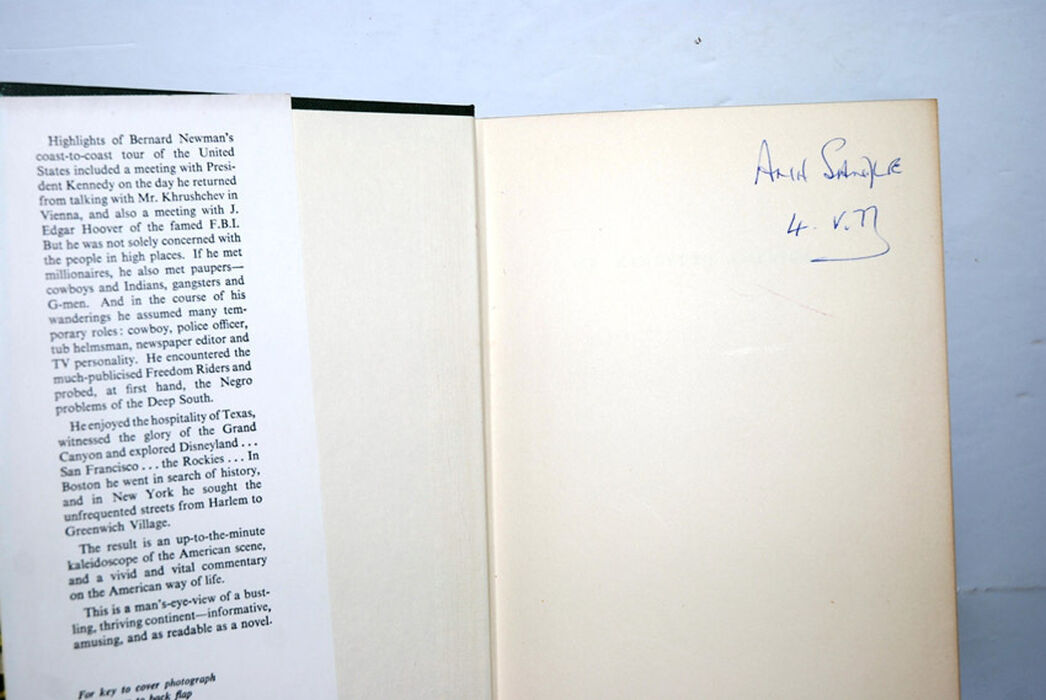 Highlights of Bernard Newman's
coast-to-coast tour of the United
States included a meeting with Presi-
dent Kennedy on the day he returned
from talking with Mr. Khrushchev in
Vienna, and also a meeting with J.
Edgar Hoover of the famed F.B.I.
But he was not solely concerned with
the people in high places. If he met
millionaires, he also met paupers—
cowboys and Indians, gangsters and
G-men. And in the course of his
wanderings he assumed many tem-
porary roles: cowboy, police officer,
tub helmsman, newspaper editor and
TV personality. He encountered the
much-publicised Freedom Riders and
probed, at first hand, the Negro
problems of the Deep South.
He enjoyed the hospitality of Texas,
witnessed the glory of the Grand
Canyon and explored Disneyland . . .
San Francisco . . . the Rockies . . . In
Boston he went in search of history,
and in New York he sought the
unfrequented streets from Harlem to
Greenwich Village.
The result is an up-to-the-minute
kaleidoscope of the American scene,
and a vivid and vital commentary
on the American way of life.
This is a man's-eye-view of a bust-
ling, thriving continent—informative,
amusing, and as readable as a novel.
For key to cover photograph
to back flap
4. V.